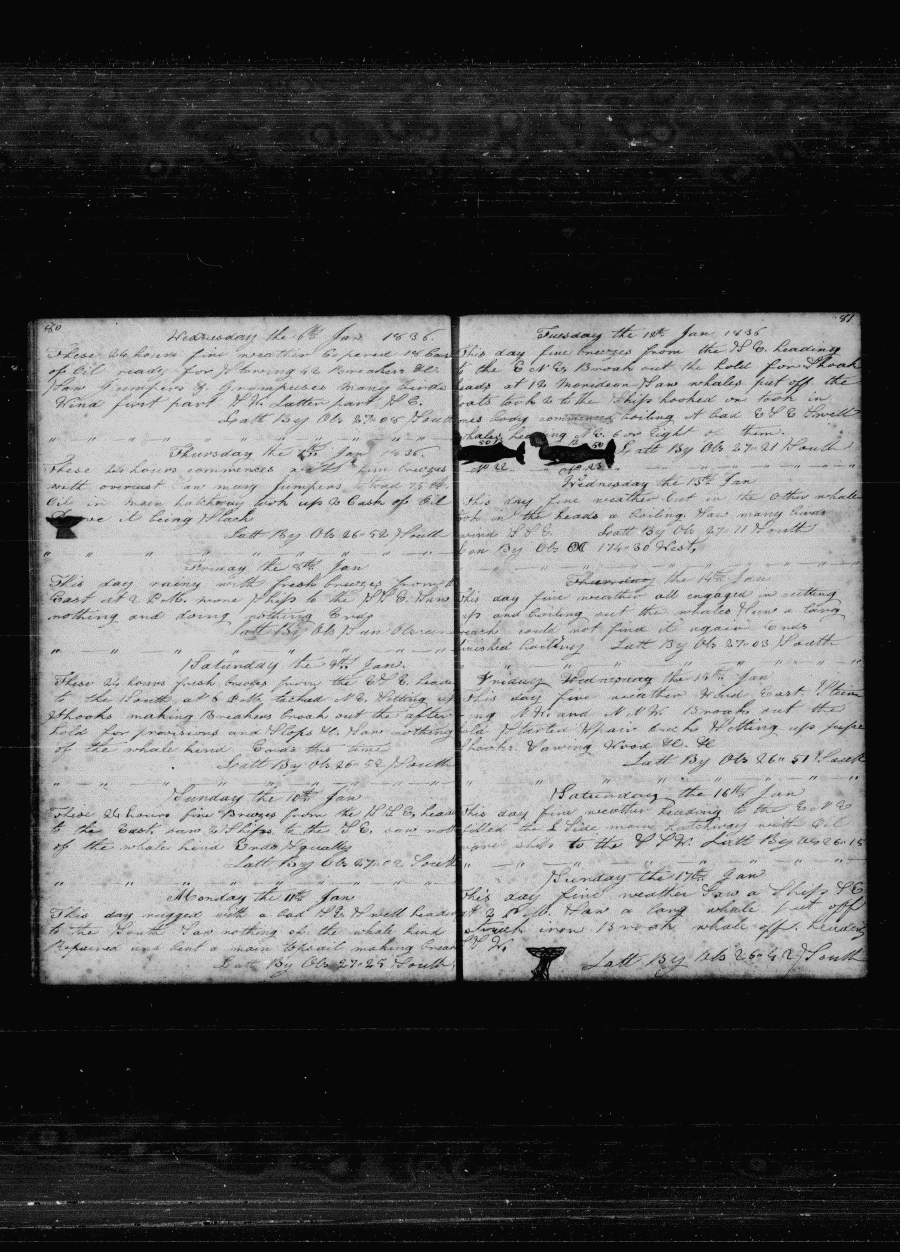 80
Wednesday the 6th Jan 1836.
These 24 hours fine weather Coopered 18 
of Oil ready for Stowing 42 Breakers &c.
Saw Jumpers & Grampuses many birds
Wind first part N.W. Latter part S.E.
Latt By Obs 27=08 South
Thursday the 7th Jan 1836.
These 24 hours commences with fine breezes
with overcast Saw many Jumpers Stowd 75 
Oil in main hatchway took up 2 Cask of Oil
it being Slack
Latt By Obs 26=52 South
Friday the 8th Jan
This day rainy with fresh breezes from
East at 2 P.M. more Ship to the Saw
nothing and doing nothing Ends
Latt By Obs Sun Obscure
Saturday the 9th Jan.
These 24 hours fresh breezes from the heade
to the South at 5 P.M. tacked N.E. Setting up
Shooks making Breakers broak out the after
hold for provisions and Slops &c. Saw nothing
of the whale kind Ends this time
Latt By Obs 26=52 South
Sunday the 10th Jan
These 24 hours fine Breezes from the heade
to the East, saw 2 Ships to the S.E. saw not
of the whale kind Ends Squally
Latt By Obs 27=02 South
Monday the 11th Jan
This day rugged with a bad S.E. Swell heading
to the South Saw nothing of the whale kind
Repaired and bent a main topsail making
Latt By Obs 27=25 South
81
Tuesday the 12th Jan 1836
This day fine breezes from the S.E. heading
the E N E, Broak out the hold for Shook
heads at 12 Meridean Saw whales put off the
took 2 to the Ship hooked on took in
one body commenced boiling A bad E S E Swell
whales heading N E. 6 or Eight of them.
50 50 Latt By Obs 27=21 South
No 22 No 23
Wednesday the 13th Jan
This day fine weather Cut in the Other whale
took in the heads a boiling. Saw many 
wind S.S.E. Latt By Obs 27=11 South
Lon By Obs 174=30 West,
Thursday the 14th Jan
This day fine weather all engaged in cutting
up and boiling out the whales Saw a large
could not find it again Ends
finished boiling Latt By Obs 27=03 South
Friday Wednesday the 15th Jan
This day fine weather Wind East Steer
ing N.W. and N.N.W. Broak out the
old Started Setting up pipe
Shooks. & Sawing Wood &c. &c
Latt By Obs 26=51 South
Saturday the 16th Jan
This day fine weather heading to the E N E
filled the L Side main hatchway with Oil
to the S S W. Latt By Obs 26=15
Sunday the 17th Jan
This day fine weather Saw a Ship S E
at 2 P.M. Saw a large whale put off
Struck iron Broak whale off. heading
S. W.
Latt By Obs 26=42 South